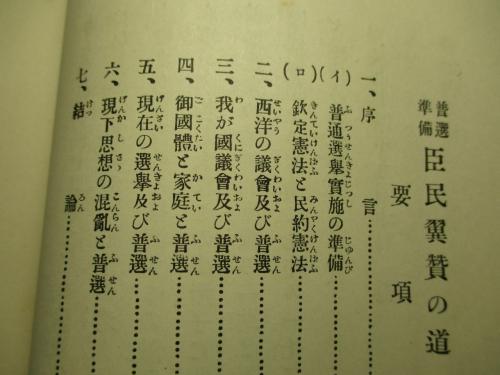 普選準備 臣民翼贊の道
要項
一、序言………
(イ) 普通選擧實施の準備………
(ロ) 欽定憲法と民約憲法………
二、西洋の議會及び普選………
三、我が國議會及び普選………
四、御國體と家庭と普選………
五、現在の選擧及び普選………
六、現下思想の混亂と普選………
七、結論………